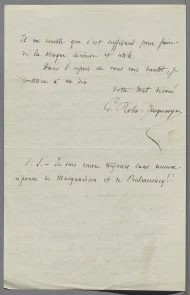 Il me semble que c'est suffisant pour faire
de la besogne sérieuse et utile.
Dans l'espoir de vous voir bientôt, je
continue à me dire
votre tout dévoué
G. Rolin-Jaequemyns
P. S. - Je suis encore toujours sans aucune
réponse de Marquardsen et de Bulmerincq!!